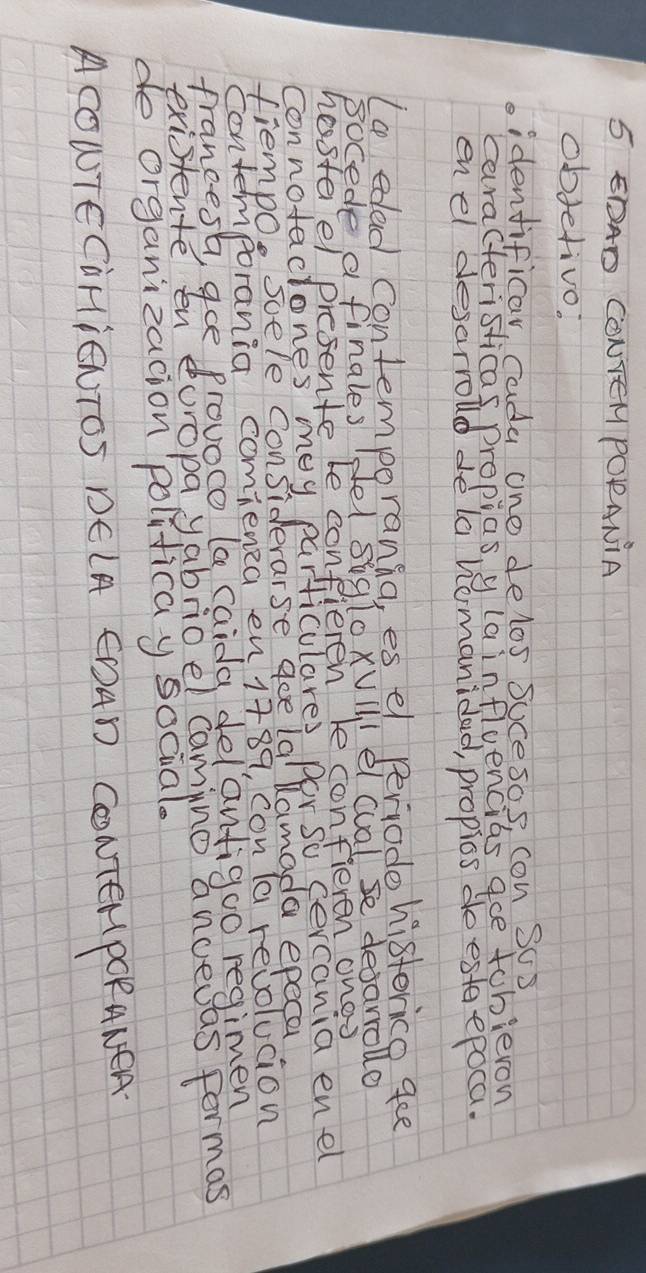 5 EDAD CONTEMPORANIA
Objetivo:
. identificar cada uno de los sucesos con sus
caracteristicas propias y la influencias que tubieron
en el desarrollo de la humanidad, propios de esta epoca.
La edad contemporania, es el periodo historico que
sucede a finales del siglo XVIII el cual se desarrollo
hasta el presente le confieren le confieren unas
connotaciones muy particulares por su cercania en el
tiempo. suele considerarse que la llamada epoca
contemporania comienza en 1789, con la revolucion
francesa, que provoco la caida del antiguo regimen
existente en Europa y abrio el camino a nuevas formas
de organizacion politica y social.
ACONTECIMIENTOS DE LA EDAD CONTEMPORANEA.